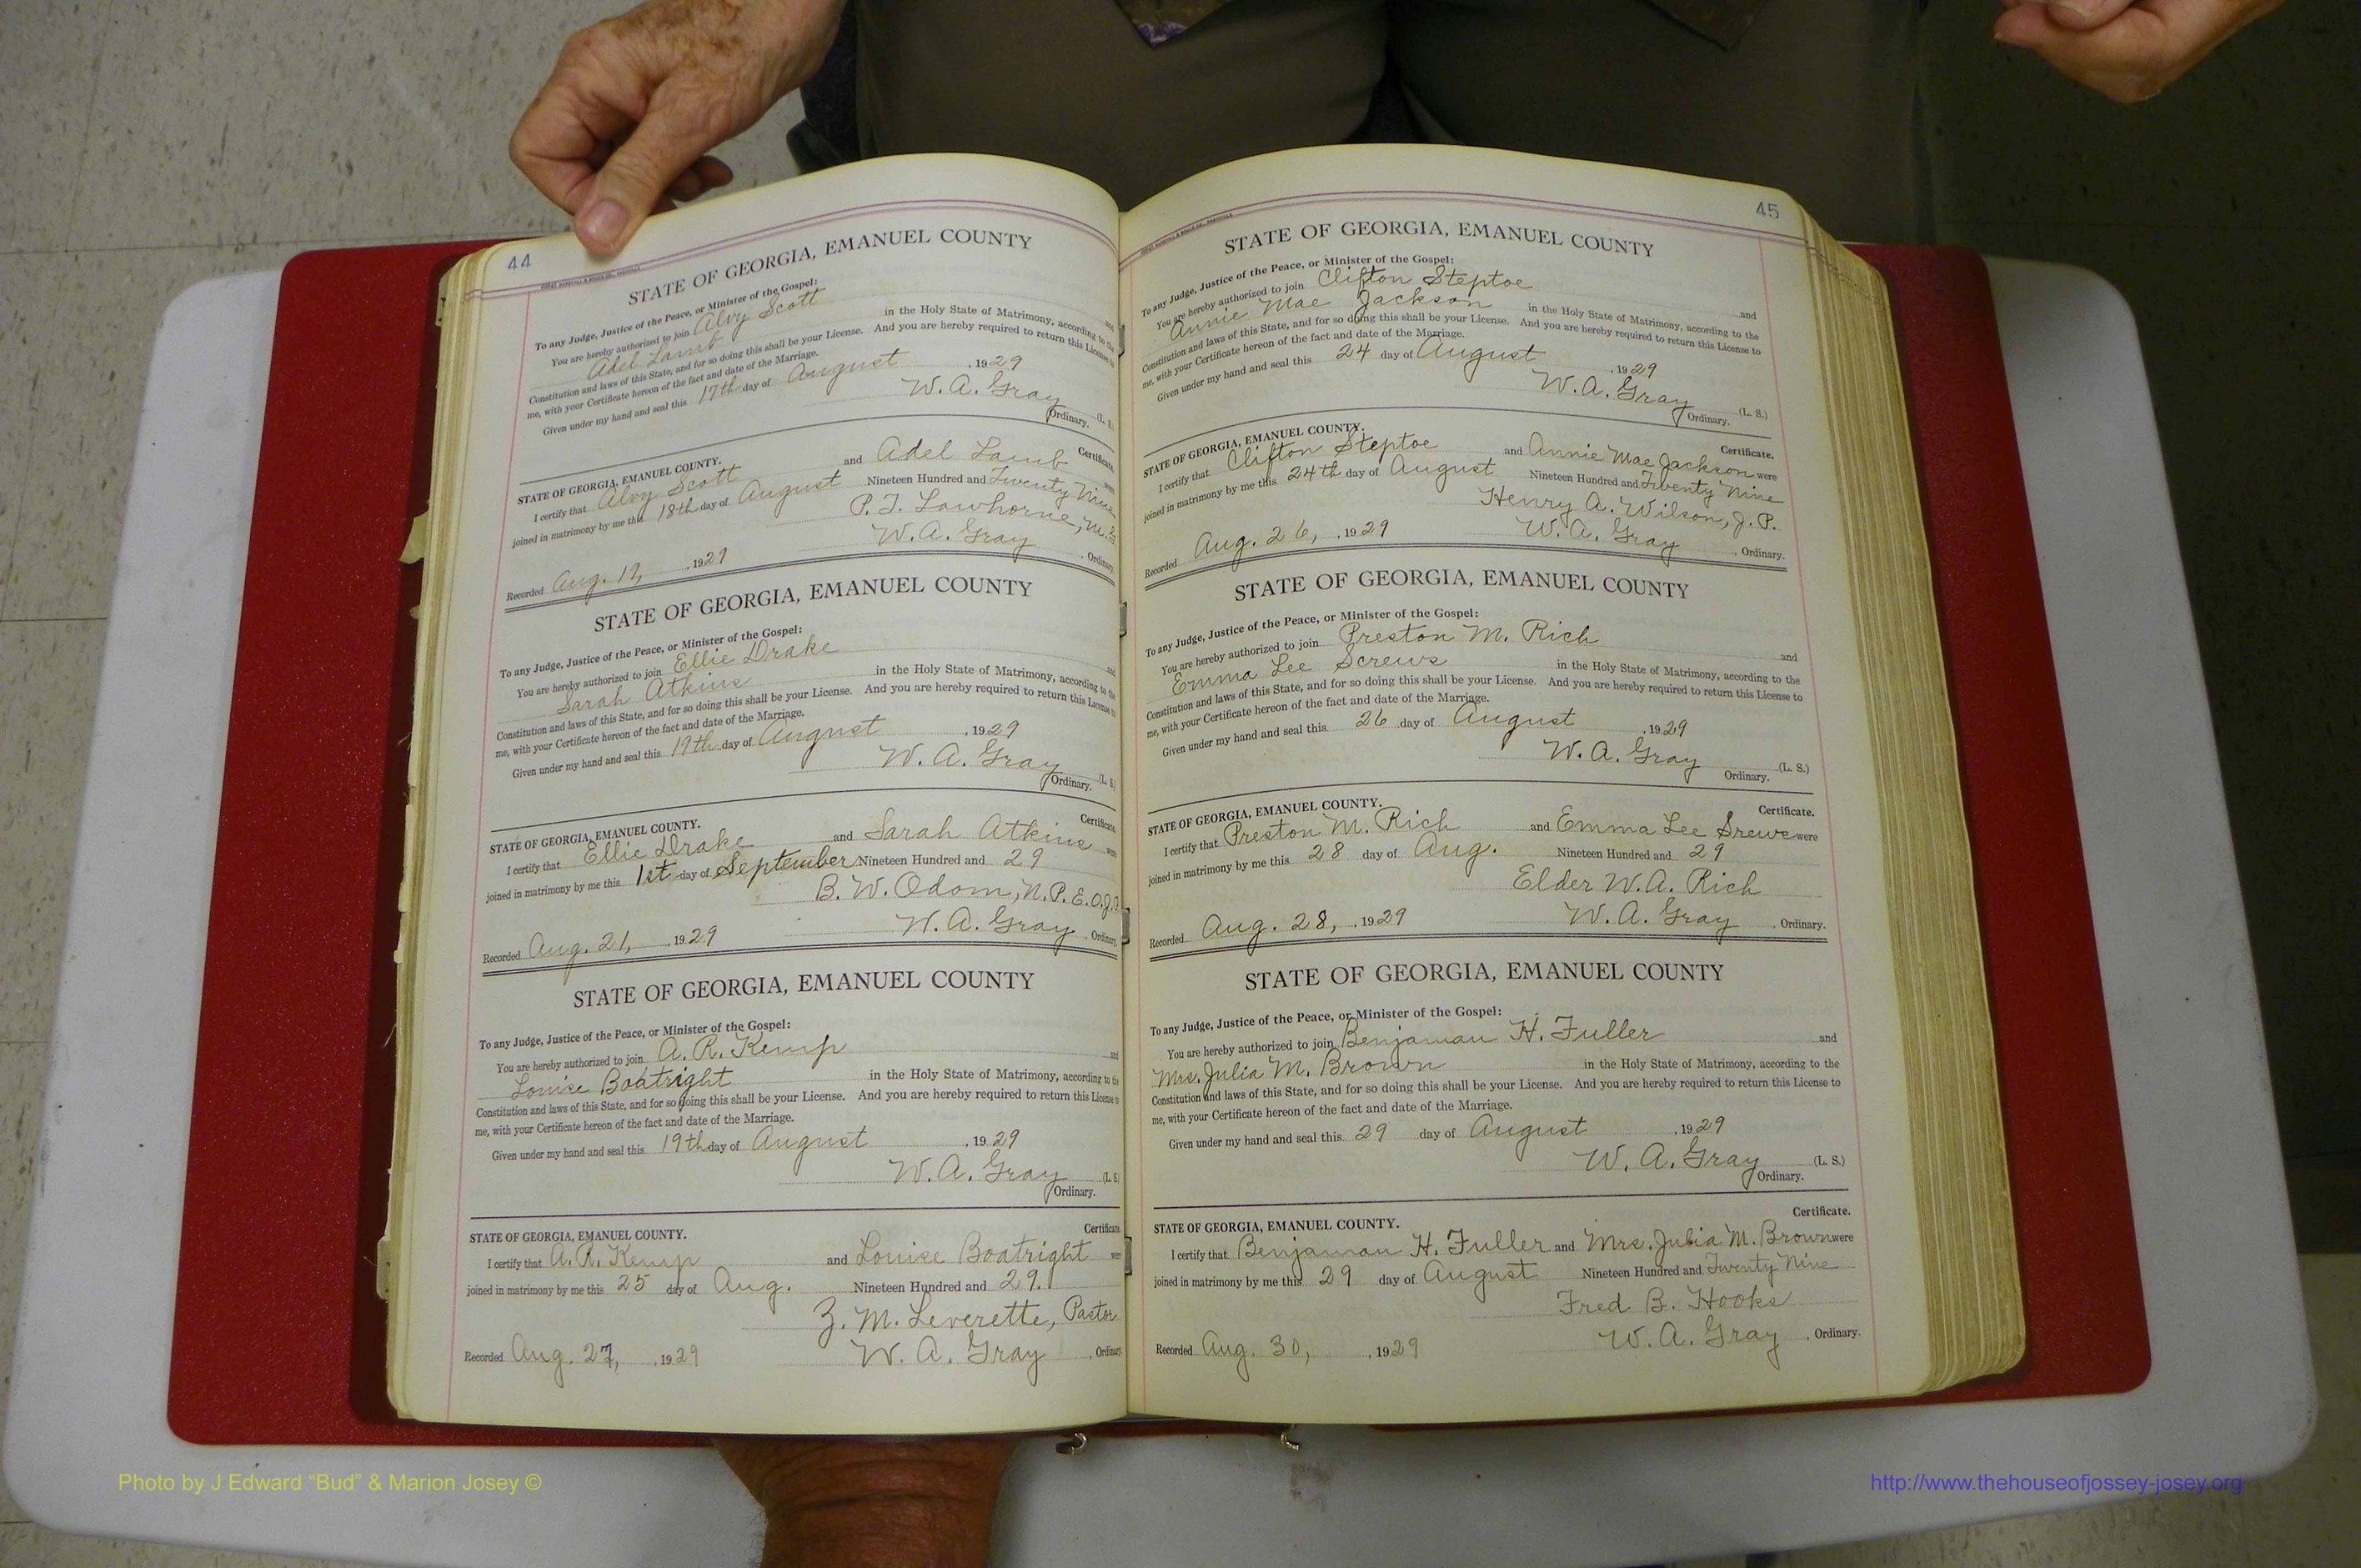 44
STATE OF GEORGIA, EMANUEL COUNTY
To any Judge, Justice of the Peace, or Minister of the Gospel:
You are hereby authorized to join Alvy Scott and
Adel Lamb in the Holy State of Matrimony, according to the
Constitution and laws of this State, and for so doing this shall be your License. And you are hereby required to return this License to
me, with your Certificate hereon of the fact and date of the Marriage.
Given under my hand and seal this 17th day of August, 1929
W. A. Gray (L. S.)
Ordinary.
STATE OF GEORGIA, EMANUEL COUNTY. Certificate.
I certify that Alvy Scott and Adel Lamb were
joined in matrimony by me this 18th day of August Nineteen Hundred and Twenty Nine
P. T. Lawhorne, M.G.
Recorded Aug. 19, 1929 W. A. Gray, Ordinary
STATE OF GEORGIA, EMANUEL COUNTY
To any Judge, Justice of the Peace, or Minister of the Gospel:
You are hereby authorized to join Ellie Drake and
Sarah Atkins in the Holy State of Matrimony, according to the
Constitution and laws of this State, and for so doing this shall be your License. And you are hereby required to return this License to
me, with your Certificate hereon of the fact and date of the Marriage.
Given under my hand and seal this 19th day of August, 1929
W. A. Gray (L. S.)
Ordinary.
STATE OF GEORGIA, EMANUEL COUNTY. Certificate
I certify that Ellie Drake and Sarah Atkins were
joined in matrimony by me this 1st day of September Nineteen Hundred and 29
B. W. Odom, N.P.E.O.J.P.
Recorded Aug. 21, 1929 W. A. Gray, Ordinary
STATE OF GEORGIA, EMANUEL COUNTY
To any Judge, Justice of the Peace, or Minister of the Gospel:
You are hereby authorized to join A. R. Kemp and
Louise Boatright in the Holy State of Matrimony, according to the
Constitution and laws of this State, and for so doing this shall be your License. And you are hereby required to return this License to
me, with your Certificate hereon of the fact and date of the Marriage.
Given under my hand and seal this 19th day of August, 1929
W. A. Gray (L. S.)
Ordinary.
STATE OF GEORGIA, EMANUEL COUNTY. Certificate
I certify that A. R. Kemp and Louise Boatright were
joined in matrimony by me this 25 day of Aug. Nineteen Hundred and 29.
Z. M. Leverette, Pastor
Recorded Aug. 27, 1929 W. A. Gray, Ordinary
45
STATE OF GEORGIA, EMANUEL COUNTY
To any Judge, Justice of the Peace, or Minister of the Gospel:
You are hereby authorized to join Clifton Steptoe and
Annie Mae Jackson in the Holy State of Matrimony, according to the
Constitution and laws of this State, and for so doing this shall be your License. And you are hereby required to return this License to
me, with your Certificate hereon of the fact and date of the Marriage.
Given under my hand and seal this 24 day of August, 1929
W. A. Gray (L. S.)
Ordinary.
STATE OF GEORGIA, EMANUEL COUNTY. Certificate.
I certify that Clifton Steptoe and Annie Mae Jackson were
joined in matrimony by me this 24th day of August Nineteen Hundred and Twenty Nine
Henry A. Wilson, J. P.
Recorded Aug. 26, 1929 W. A. Gray, Ordinary.
STATE OF GEORGIA, EMANUEL COUNTY
To any Judge, Justice of the Peace, or Minister of the Gospel:
You are hereby authorized to join Preston M. Rich and
Emma Lee Screws in the Holy State of Matrimony, according to the
Constitution and laws of this State, and for so doing this shall be your License. And you are hereby required to return this License to
me, with your Certificate hereon of the fact and date of the Marriage.
Given under my hand and seal this 26 day of August, 1929
W. A. Gray (L. S.)
Ordinary.
STATE OF GEORGIA, EMANUEL COUNTY. Certificate.
I certify that Preston M. Rich and Emma Lee Srews were
joined in matrimony by me this 28 day of Aug. Nineteen Hundred and 29
Elder W. A. Rich
Recorded Aug. 28, 1929 W. A. Gray, Ordinary.
STATE OF GEORGIA, EMANUEL COUNTY
To any Judge, Justice of the Peace, or Minister of the Gospel:
You are hereby authorized to join Benjaman H. Fuller and
Mrs. Julia M. Brown in the Holy State of Matrimony, according to the
Constitution and laws of this State, and for so doing this shall be your License. And you are hereby required to return this License to
me, with your Certificate hereon of the fact and date of the Marriage.
Given under my hand and seal this 29 day of August, 1929
W. A. Gray (L. S.)
Ordinary.
STATE OF GEORGIA, EMANUEL COUNTY. Certificate.
I certify that Benjaman H. Fuller and Mrs. Julia M. Brown were
joined in matrimony by me this 29 day of August Nineteen Hundred and Twenty Nine
Fred B. Hooks
Recorded Aug. 30, 1929 W. A. Gray, Ordinary.
Photo by J Edward "Bud" & Marion Josey ©
http://www.thehouseofjossey-josey.org